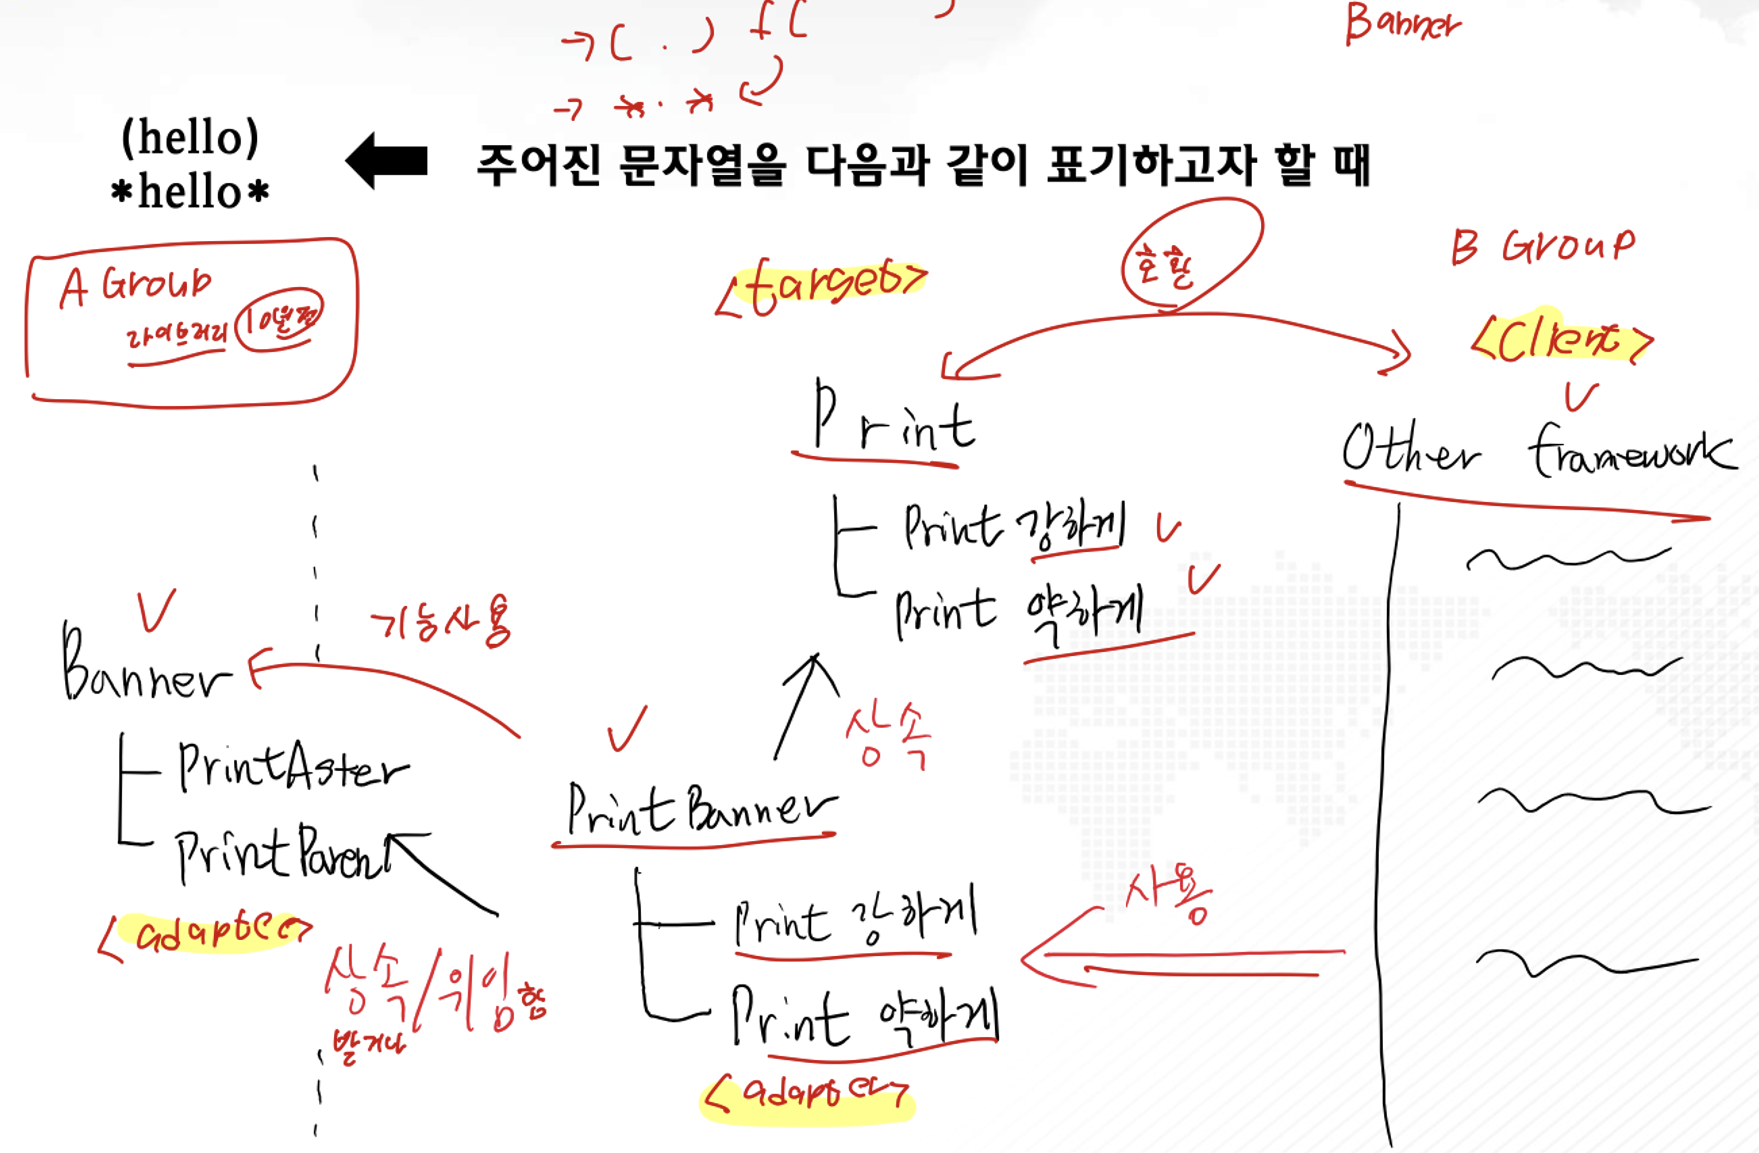 Banner
→( . ) f( )
→ *.*
(hello)
*hello*
주어진 문자열을 다음과 같이 표기하고자 할 때
A Group
라이브러리 10년전
<target>
호환
B Group
<Client>
Print
Print 강하게
Print 약하게
Other framework
Banner
기능사용
PrintAster
PrintParen
<adaptee>
상속/위임함
받거나
상속
PrintBanner
Print 강하게
Print 약하게
<adapter>
사용